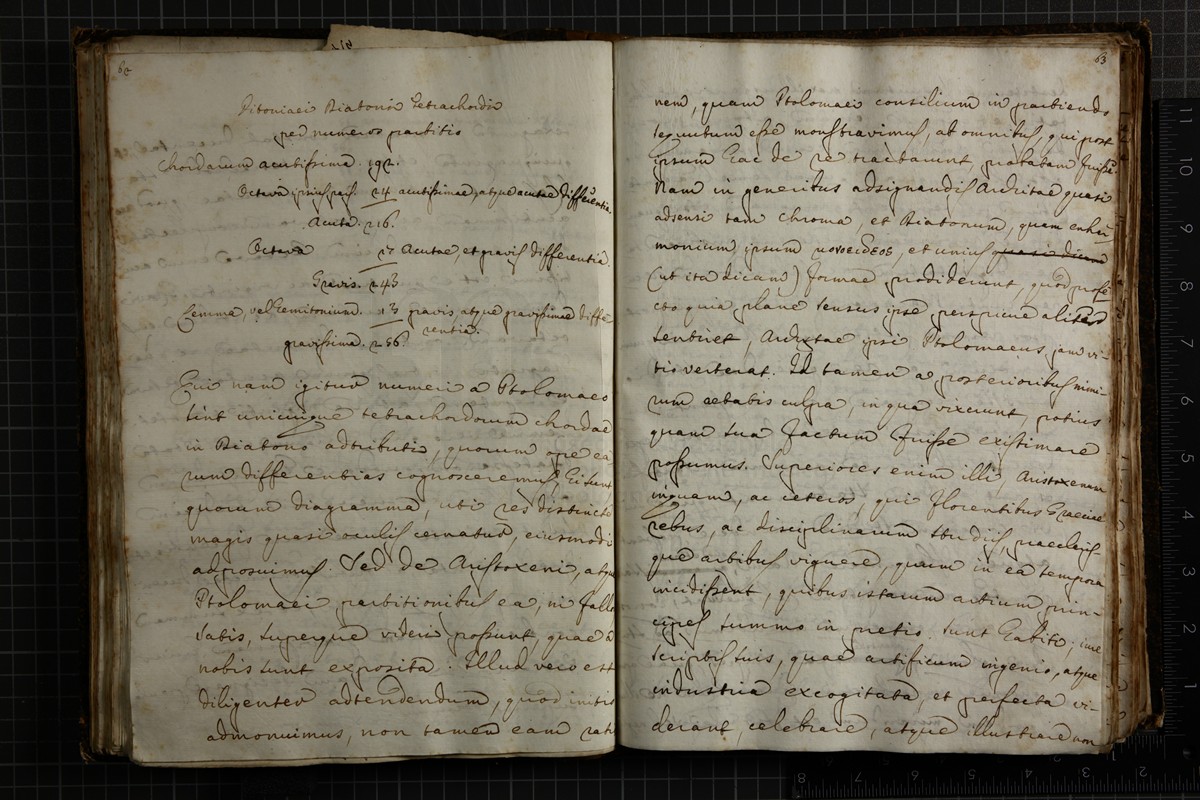 62
Ditoniaei Diatonis Tetrachordis
per numeros partitio
Chordarum acutissima. 192.
Octava ipsius pars 24 acutissimae, atque acutae differentia.
Acuta. 216.
Octava 27 Acutae, et gravis differentia.
Gravis. 243
Lemma, vel Hemitonium. 13 gravis, atque gravissimae diffe
rentia.
gravissima. 256.
Qui nam igitur numeri a Ptolomaeo
sint unicuique tetrachordorum chordae
in Diatono adtributi, quorum ope ea
rum differentias cognosceremus. Ei sunt
quorum diagramma, ubi res distincte
magis quasi oculis cernatur, eiusmodi
adposuimus. Sed de Aristoxeni, atque
Ptolomaei partitionibus ea, ni fallo
satis, superque videri possunt, quae a
nobis sunt exposita. Illud vero est
diligenter adtendendum, quod initio
admonuimus, non tamen eam rati
63
nem, quam Ptolomaei consilium in partiendo
sequutum esse monstravimus, ab omnibus, qui post
ipsum hac de re tractarunt, probatam fuisse.
Nam in generibus adsignandis Architae quasi
adsensi tam chroma, et Diatonum, quam enhar
monium ipsum μονοειδεος, et unius
(ut ita dicam) formae prodiderunt, quod profe
cto quia plane sensus ipse perspicue aliter
sentiret, Architae ipsi Ptolomaeus jam vi-
tio verterat. Id tamen a posterioribus nimi-
rum aetatis culpa, in qua vixerunt, potius
quam sua factum fuisse existimare
possumus. Superiores enim illi, Aristoxenum
inquam, ac ceteros, qui florentibus Graeciae
rebus, ac disciplinarum studiis, praeclaris
que artibus viguere, quum in ea tempora
incidissent, quibus istarum artium prin-
cipes summo in pretio sunt habiti; sive
scriptis suis, quae artificum ingenio, atque
industria excogitata, et perfecta vi-
derant, celebrare, atque illustrare non